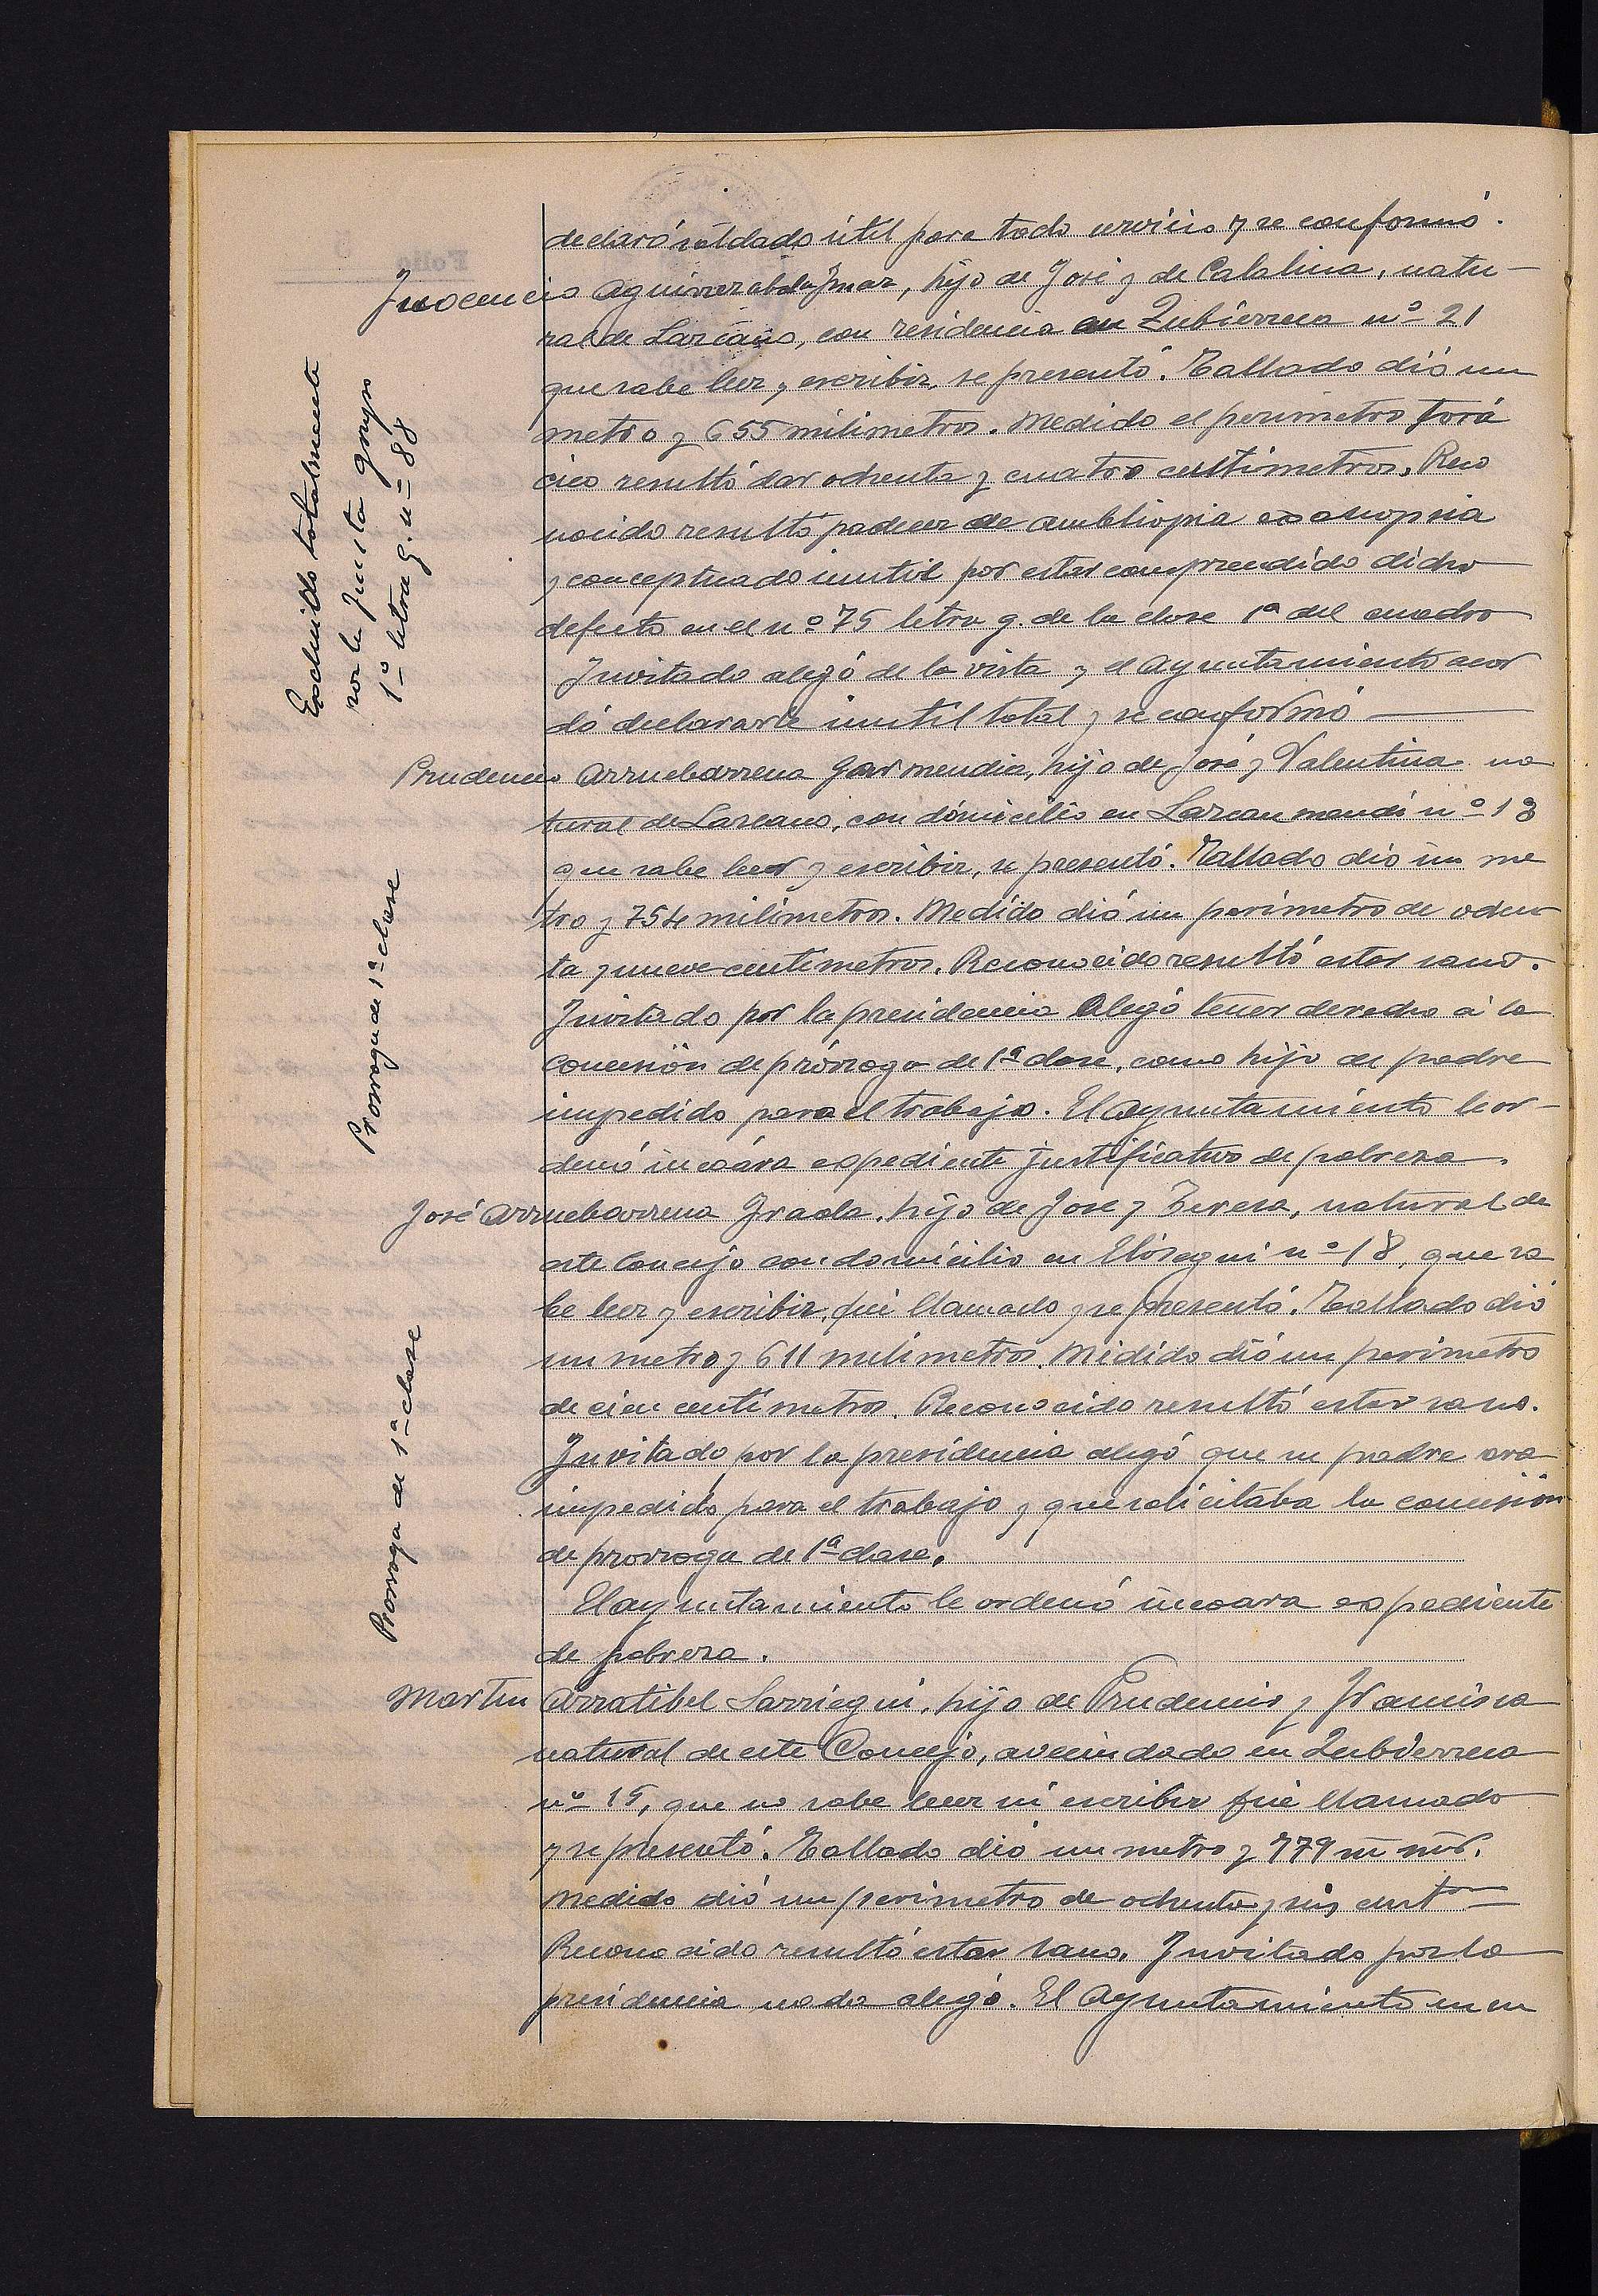 declaró soldado útil para todo servicio y se conformó.
Inocencio Aguirrezabala Imaz, hijo de José y de Catalina, natu-
ral de Lazcano, con residencia en Zubierreca nº 21
que sabe leer y escribir, se presentó. Tallado dió un
metro y 655 milimetros. Medido el perimetro torá
cico resultó dar ochenta y cuatro centimetros. Reco
nocido resultó padecer de ambliopia ex anopsia
y conceptuado inutil por estar comprendido dicho
defecto en el nº 75 letra g. de la clase 1ª del cuadro
Invitado alegó de la vista y el Ayuntamiento acor
dó declararle inutil total y se conformó
Excluido totalmente
por la Junta grupo
1º letra G. nº 88
Prudencio Arruebarrena Garmendia, hijo de José y Valentina na
tural de Lazcano, con domicilio en Lazcanmendi nº 13
que sabe leer y escribir, se presentó. Tallado dio un me
tro y 754 milimetros. Medido dió un perimetro de ochen
ta y nueve centimetros. Reconocido resultó estar sano.
Invitado por la presidencia Alegó tener derecho á la
concesión de prórroga de 1ª clase, como hijo de padre
impedido para el trabajo. El Ayuntamiento le or-
denó incoara expediente justificativo de pobreza.
Prorroga de 1ª clase
José Arruebarrena Iraola, hijo de Jose y Teresa, natural de
este Concejo con domicilio en Elósegui nº 18, que sa
be leer y escribir, fué llamado y se presentó. Tallado dió
un metro y 611 milimetros. Medido dió un perimetro
de cien centimetros. Reconocido resultó estar sano.
Invitado por la presidencia alegó que su padre era
impedido para el trabajo y que solicitaba la concesión
de prorroga de 1ª clase.
El ayuntamiento le ordenó incoara expediente
de pobreza.
Prorroga de 1ª clase
Martin Arratibel Sarriegui, hijo de Prudencio y Francisca
natural de este Concejo, avecindado en Zubierreca
nº 15, que no sabe leer ni escribir fué llamado
y se presentó. Tallado dió un metro y 779 m mts.
Medido dió un perimetro de ochenta y seis cent
Reconocido resultó estar sano. Invitado por la
presidencia nada alegó. El Ayuntamiento en su